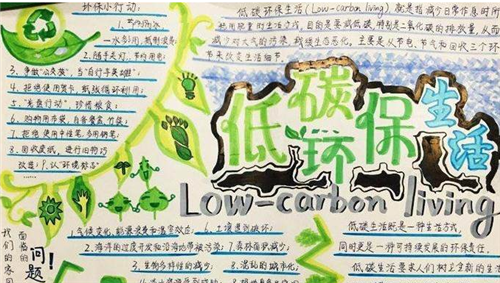 环保小行动:
1. 节约用水
一水多用,抵制浪费
2. 随手关灯,节约用电
3. 争做"公交族",当"自行车英雄"
4. 拒绝使用贺卡,纸张循环利用
5. "光盘行动",珍惜粮食
6. 购物用布袋,自带餐盒、竹筷
7. 拒绝使用中性笔,多用钢笔
8. 回收废纸,进行旧物巧
改造!9. 认"环境标志"
低碳环保生活 (Low-carbon living) 就是指减少日常作息时所
耗用能量的生活方式,目的是要减低碳,特别是二氧化碳的排放量,从而
减少对大气的污染,减缓生态恶化,主要是从节电、节气和回收三个环
节来改变生活细节。
低碳环保生活
Low-carbon living
我们的家园
面临的
问题
1. 气候变化、能源浪费和温室效应;
2. 海洋的过度开发和沿海地带被污染;
3. 生物多样性的减少;
6. 土壤遭到破坏;
7. 森林面积减少;
8. 混乱的城市化;
低碳生活既是一种生活方式,
同时更是一种可持续发展的环保责任。
低碳生活要求人们树立全新的生